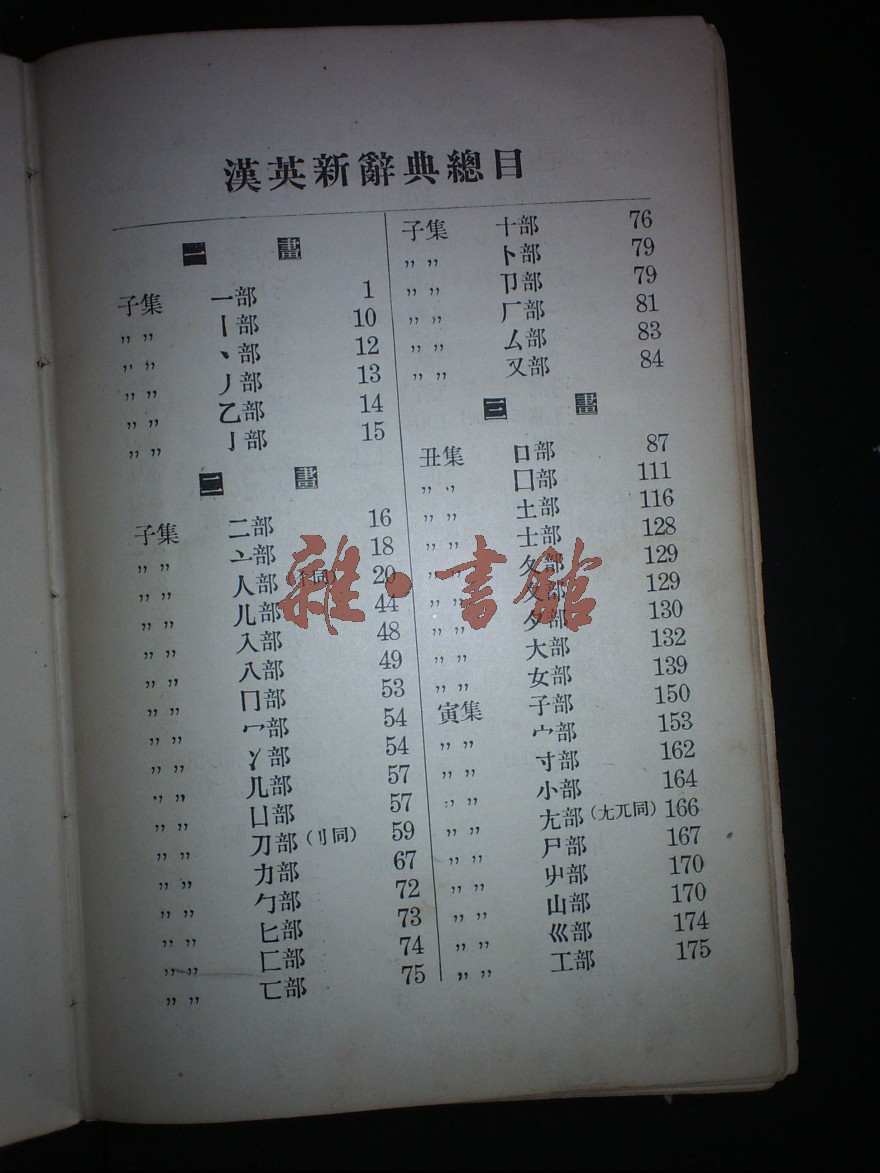 漢英新辭典總目
一 畫
子集 一部 1
〃 〃 丨部 10
〃 〃 丶部 12
〃 〃 丿部 13
〃 〃 乙部 14
〃 〃 亅部 15
二 畫
子集 二部 16
〃 〃 亠部 18
〃 〃 人部(亻同) 20
〃 〃 儿部 44
〃 〃 入部 48
〃 〃 八部 49
〃 〃 冂部 53
〃 〃 冖部 54
〃 〃 冫部 54
〃 〃 几部 57
〃 〃 凵部 57
〃 〃 刀部(刂同) 59
〃 〃 力部 67
〃 〃 勹部 72
〃 〃 匕部 73
〃 〃 匚部 74
〃 〃 匸部 75
子集 十部 76
〃 〃 卜部 79
〃 〃 卩部 79
〃 〃 厂部 81
〃 〃 厶部 83
〃 〃 又部 84
三 畫
丑集 口部 87
〃 〃 囗部 111
〃 〃 土部 116
〃 〃 士部 128
〃 〃 夂部 129
〃 〃 夊部 129
〃 〃 夕部 130
〃 〃 大部 132
〃 〃 女部 139
寅集 子部 150
〃 〃 宀部 153
〃 〃 寸部 162
〃 〃 小部 164
〃 〃 尢部(尣兀同) 166
〃 〃 尸部 167
〃 〃 屮部 170
〃 〃 山部 170
〃 〃 巛部 174
〃 〃 工部 175
雜·書館